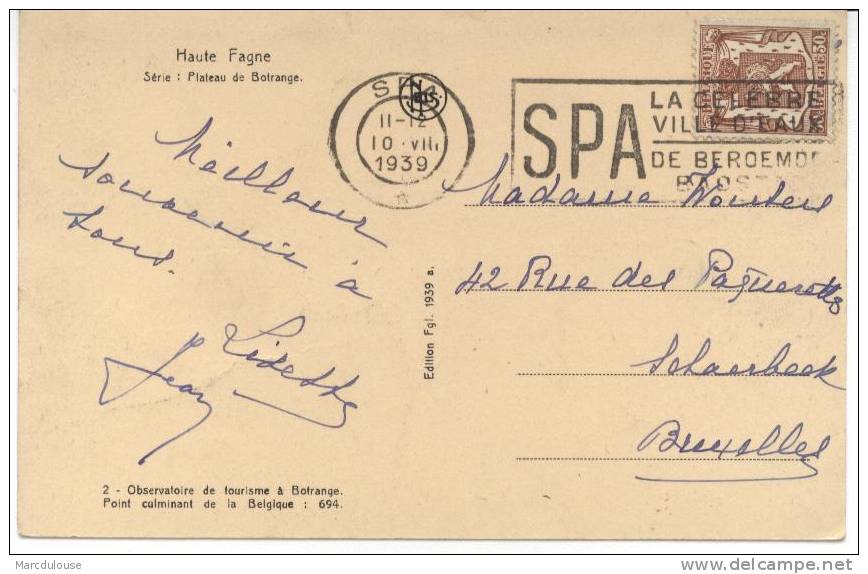 Haute Fagne
Série : Plateau de Botrange.
SPA
11-12
10 · VIII
1939
SPA
LA CÉLÈBRE
VILLE D'EAUX
DE BEROEMDE
BADST
BELGIQUE
BELGIË
30c
Meilleur
souvenir à
tous.
Lisette
Jean
Madame Wouters
42 Rue des Paquerettes
Schaerbeek
Bruxelles
Edition Fgl. 1939 a.
2 - Observatoire de tourisme à Botrange.
Point culminant de la Belgique : 694.
Marcdulouse
delcampe.net